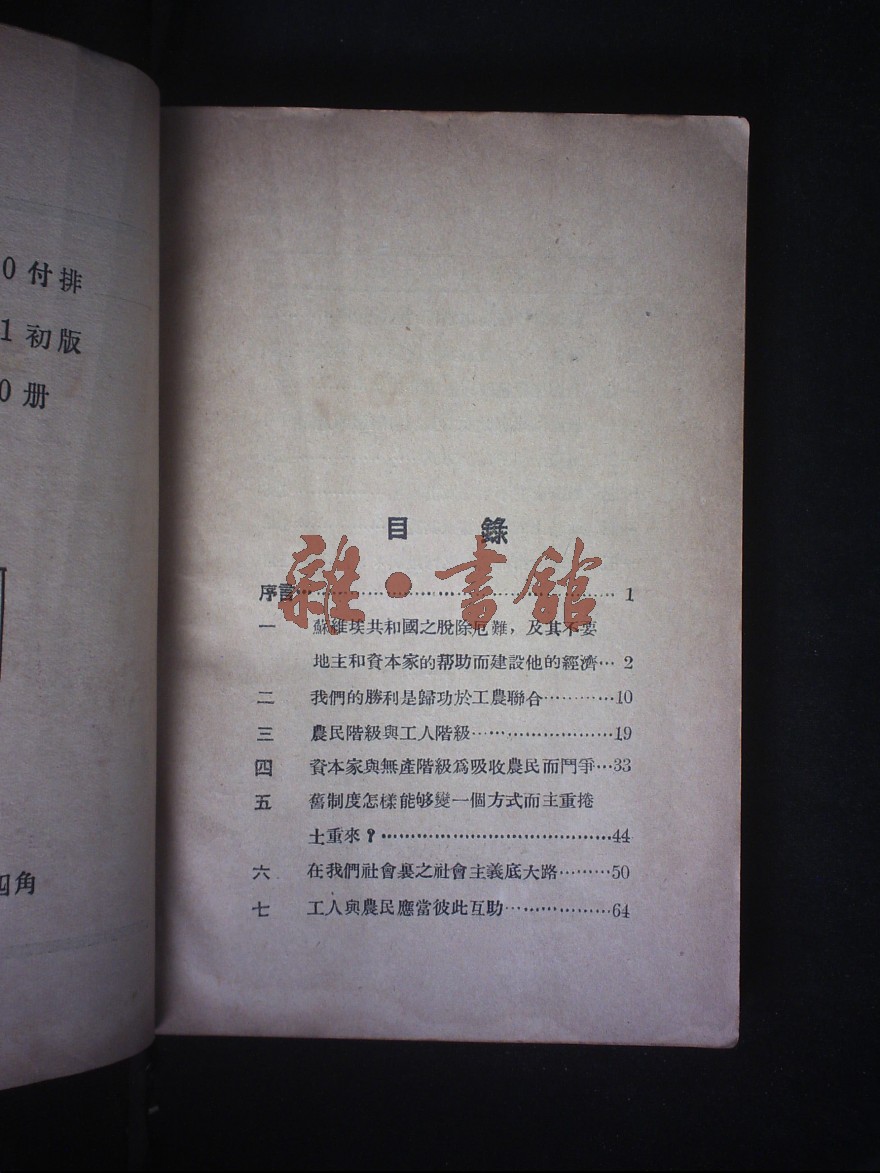 0付排
1初版
0册
四角
目 錄
序言……………………………………… 1
一 蘇維埃共和國之脫除厄難，及其不要
地主和資本家的帮助而建設他的經濟… 2
二 我們的勝利是歸功於工農聯合…………10
三 農民階級與工人階級……………………19
四 資本家與無產階級爲吸收農民而鬥爭…33
五 舊制度怎樣能够變一個方式而主重捲
土重來？……………………………………44
六 在我們社會裏之社會主義底大路………50
七 工人與農民應當彼此互助………………64
雜·書館